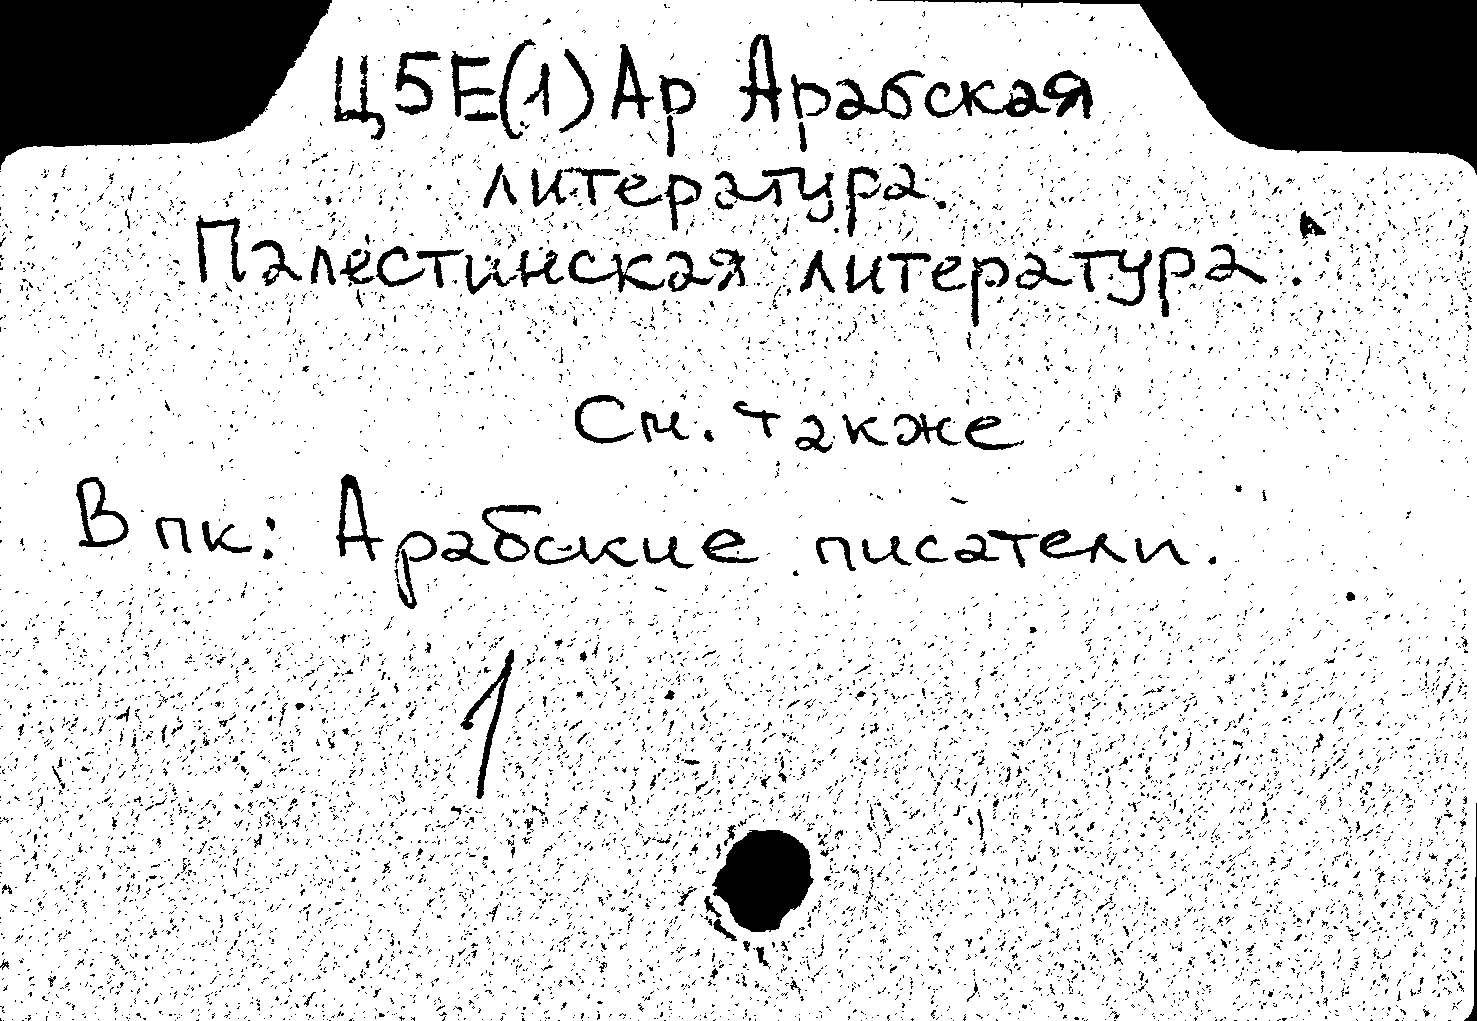 Ц5Е(1)Ар Арабская
литература.
Палестинская литература.
См. также
В пк: Арабские писатели.
1